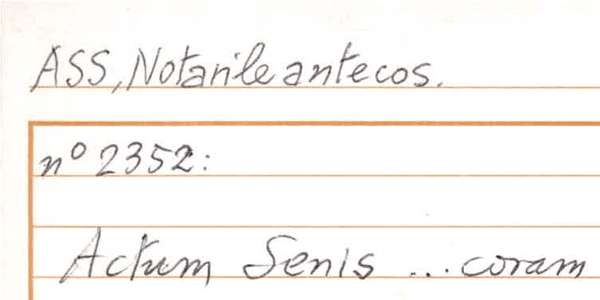 ASS, Notarile antecos.
nº 2352:
Actum Senis ... coram